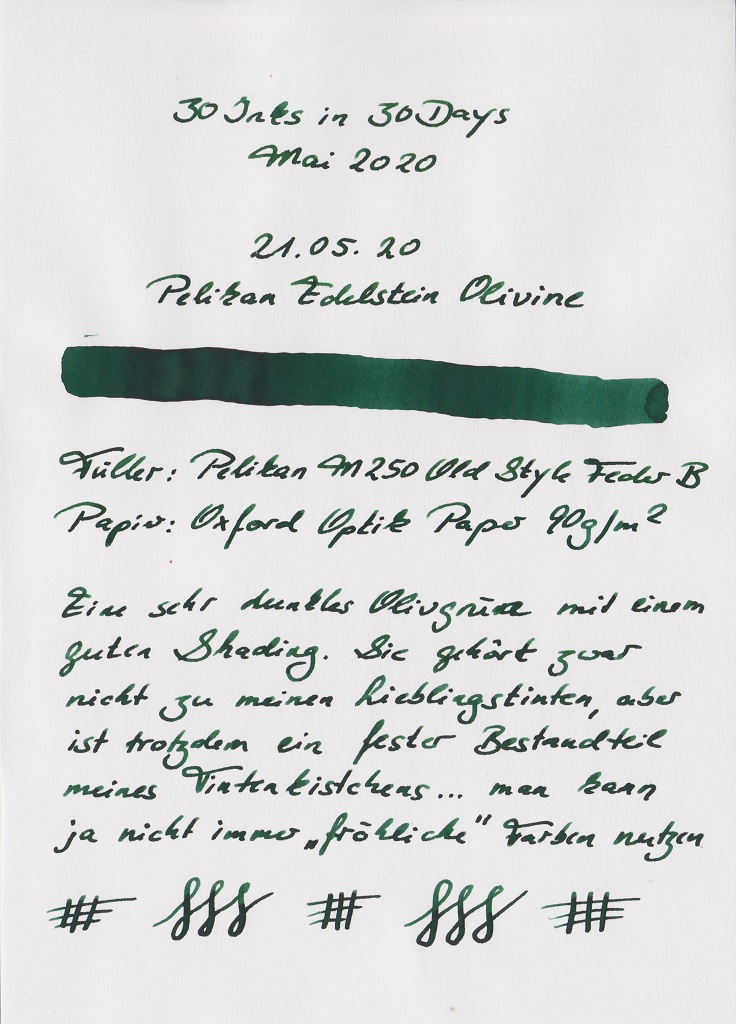 30 Inks in 30 Days
Mai 2020
21.05.20
Pelikan Edelstein Olivine
Füller: Pelikan M250 Old Style Feder B
Papier: Oxford Optik Paper 90g/m²
Eine sehr dunkles Olivgrüne mit einem
guten Shading. Sie gehört zwar
nicht zu meinen Lieblingstinten, aber
ist trotzdem ein fester Bestandteil
meines Tintenkistchens... man kann
ja nicht immer „fröhliche" Farben nutzen